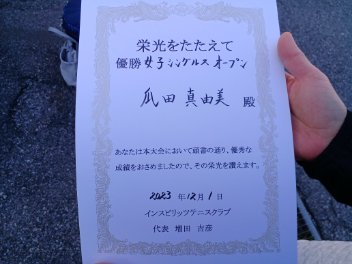 栄光をたたえて
優勝 女子シングルス オープン
瓜田 真由美 殿
あなたは本大会において頭書の通り、優秀な
成績をおさめましたので、その栄光を讃えます。
2023 年 12 月 1 日
インスピリッツテニスクラブ
代表 増田 吉彦